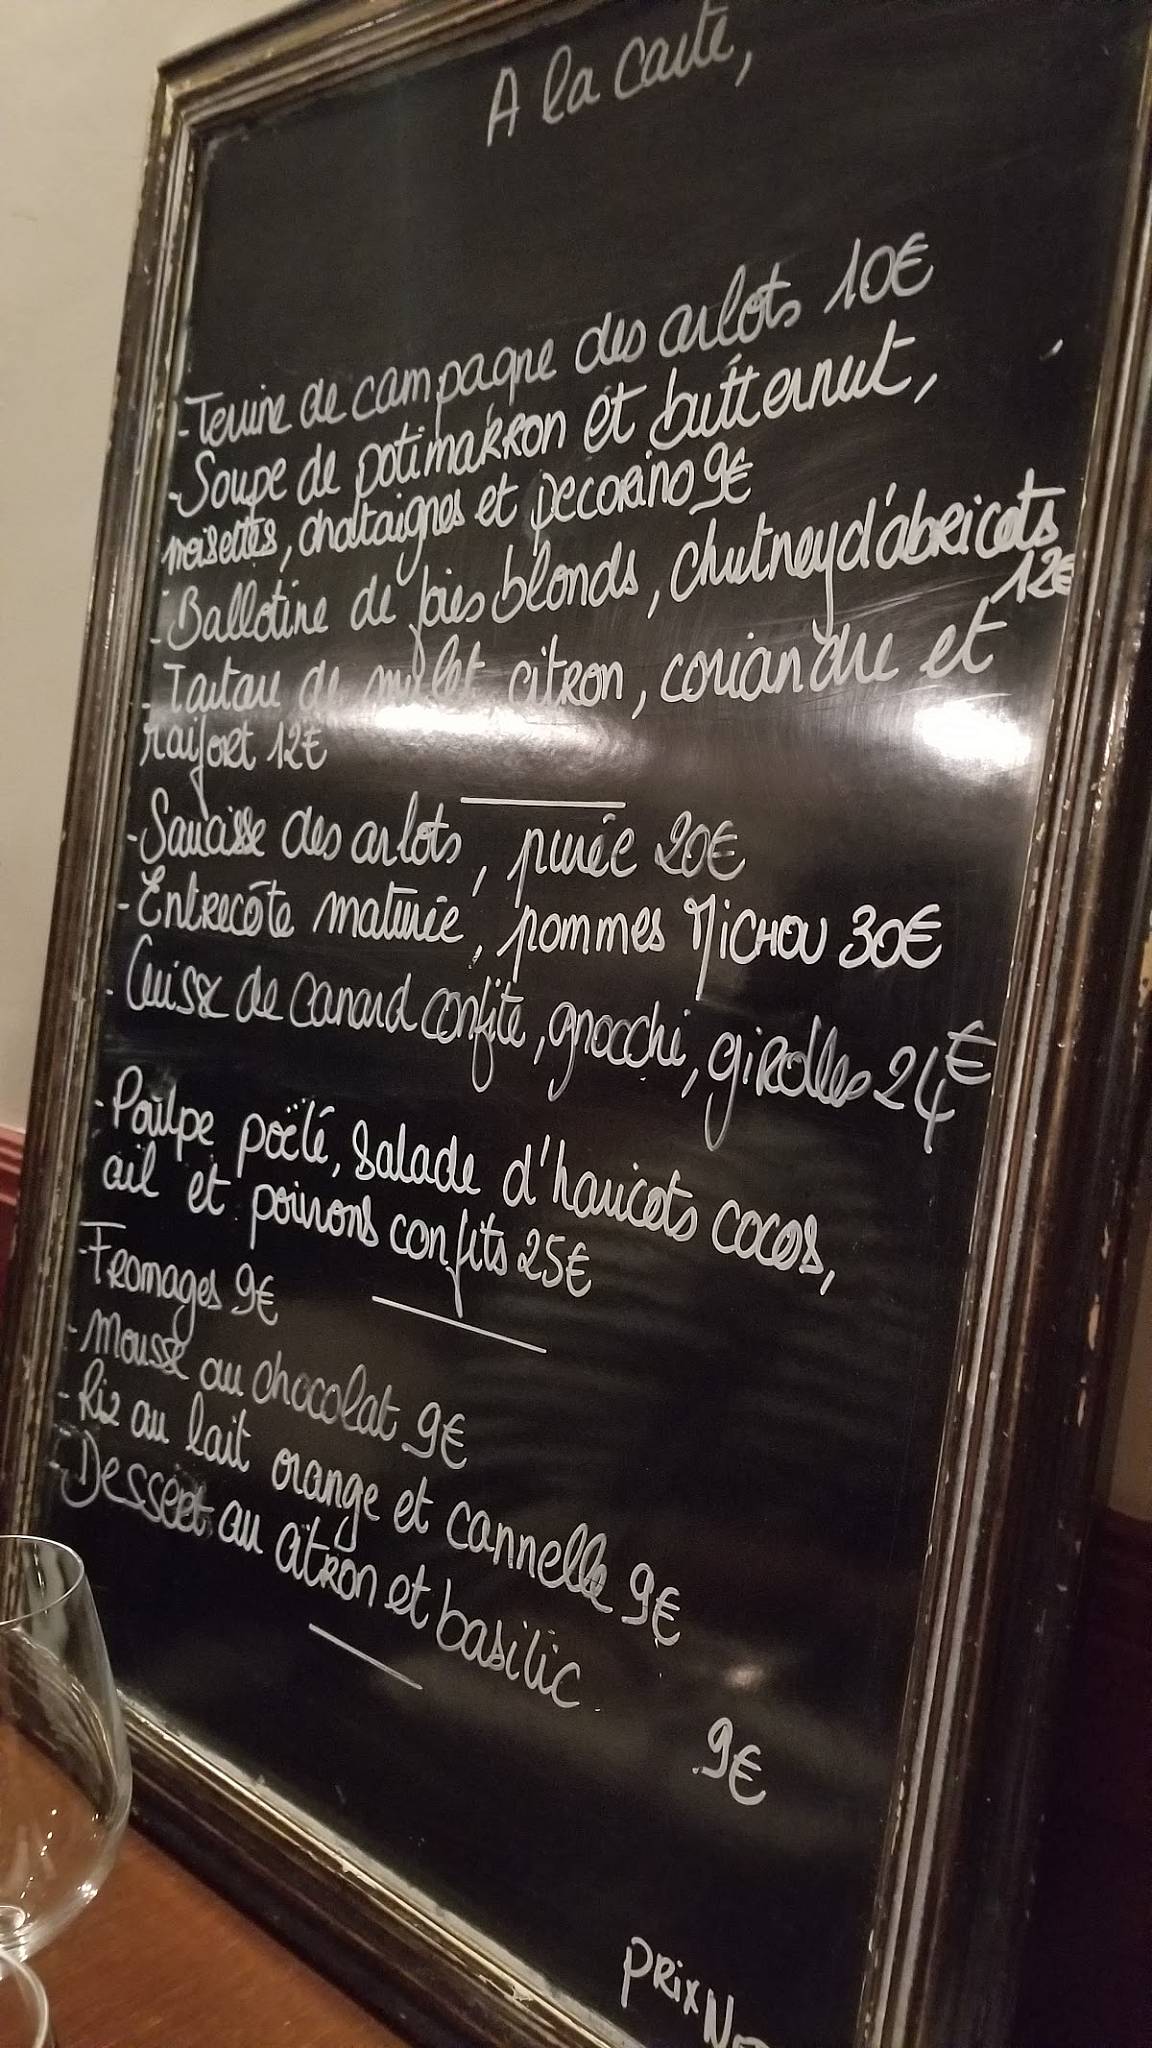 A la carte,
- Terrine de campagne des arlots 10€
- Soupe de potimarron et butternut,
noisettes, chataignes et pecorino 9€
- Ballotine de foies blonds, chutney d'abricots
12€
- Tartare de mulet, citron, coriandre et
raifort 12€
- Saucisse des arlots, purée 20€
- Entrecôte maturée, pommes MiCHOU 30€
- Cuisse de canard confite, gnocchi, girolles 24€
- Poulpe poëlé, salade d'haricots cocos,
ail et poivrons confits 25€
- Fromages 9€
- Mousse au chocolat 9€
- Riz au lait orange et cannelle 9€
- Dessert au citron et basilic
9€
PRix